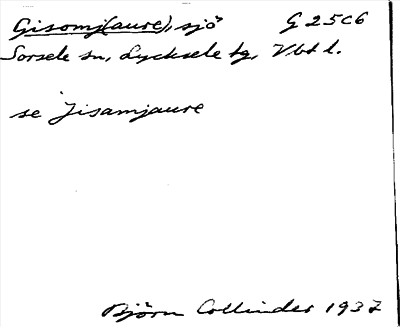 Gisomj(aure), sjö G 25C6
Sorsele sn, Lycksele tg, Vbt l.
se Jisamjaure
Björn Collinder 1937